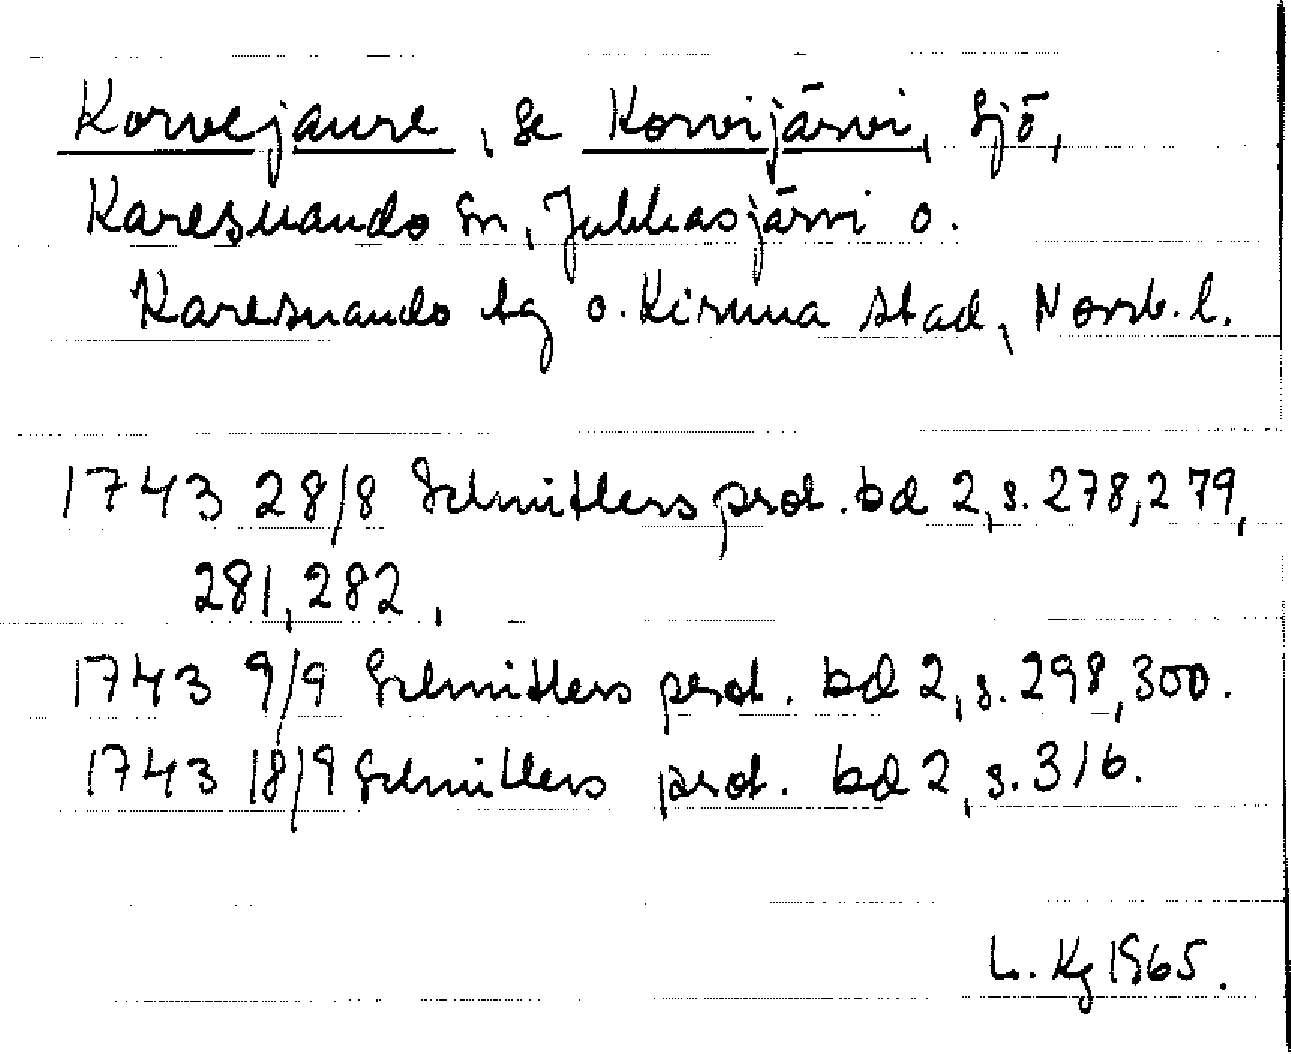 Korvejaure, se Korvijärvi, sjö,
Karesuando sn, Jukkasjärvi o.
Karesuando tg o. Kiruna stad, Norrb. l.
1743 28/8 Schnitlers prot. bd 2, s. 278, 279,
281, 282,
1743 9/9 Schnitlers prot. bd 2, s. 298, 300.
1743 18/9 Schnitlers prot. bd 2, s. 316.
L. Kg 1965.